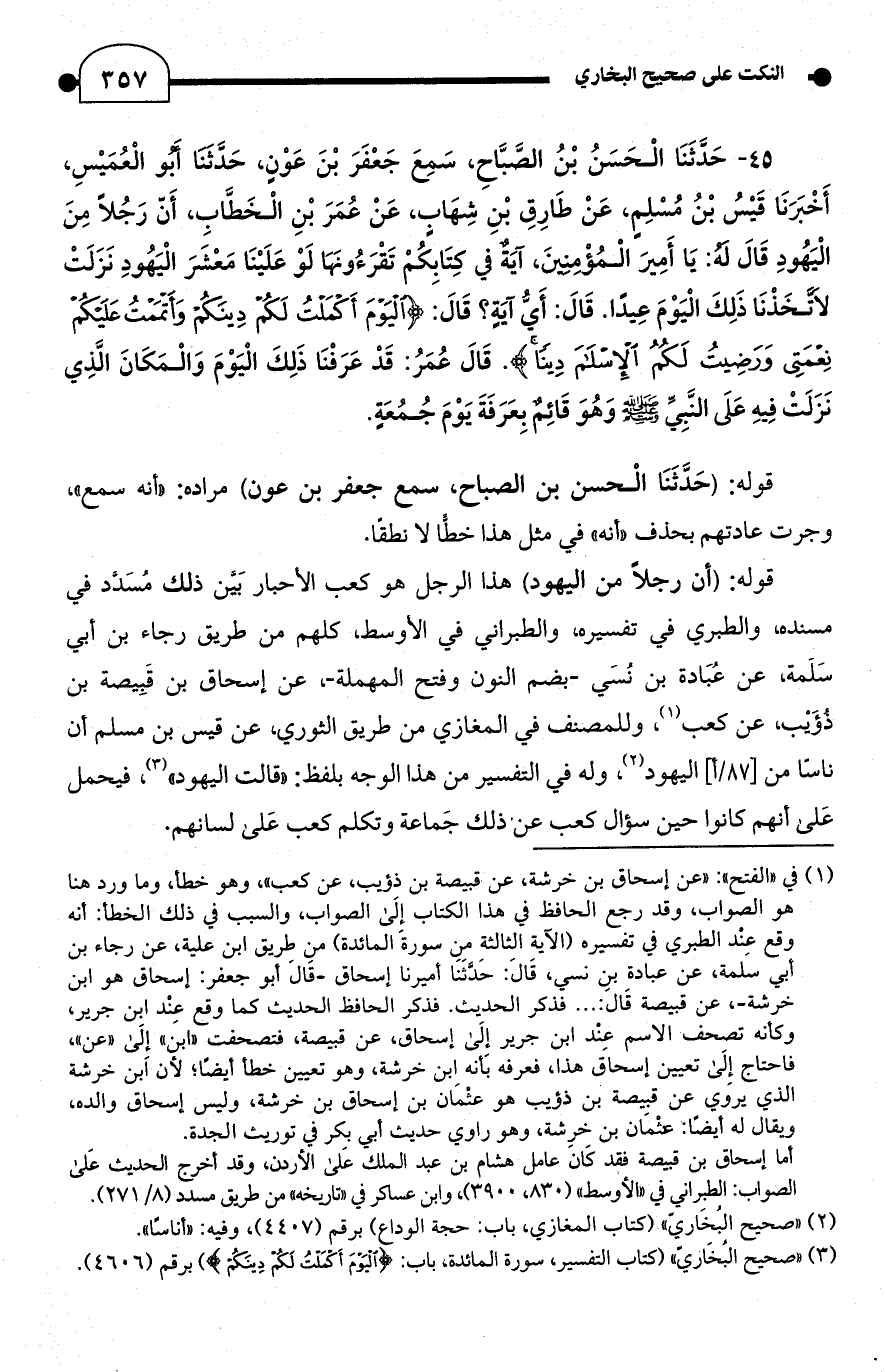 النكت على صحيح البخاري
٣٥٧
٤٥- حَدَّثَنَا الْـحَسَنُ بْنُ الصَّبَّاحِ، سَمِعَ جَعْفَرَ بْنَ عَوْنٍ، حَدَّثَنَا أَبُو الْعُمَيْسِ،
أَخْبَرَنَا قَيْسُ بْنُ مُسْلِمٍ، عَنْ طَارِقِ بْنِ شِهَابٍ، عَنْ عُمَرَ بْنِ الْـخَطَّابِ، أَنّ رَجُلاً مِنَ
الْيَهُودِ قَالَ لَهُ: يَا أَمِيرَ الْـمُؤْمِنِينَ، آيَةٌ فِي كِتَابِكُمْ تَقْرَءُونَهَا لَوْ عَلَيْنَا مَعْشَرَ الْيَهُودِ نَزَلَتْ
لاَتَّـخَذْنَا ذَلِكَ الْيَوْمَ عِيدًا. قَالَ: أَيُّ آيَةٍ؟ قَالَ: ﴿ٱلْيَوْمَ أَكْمَلْتُ لَكُمْ دِينَكُمْ وَأَتْمَمْتُ عَلَيْكُمْ
نِعْمَتِى وَرَضِيتُ لَكُمُ ٱلْإِسْلَٰمَ دِينًا﴾. قَالَ عُمَرُ: قَدْ عَرَفْنَا ذَلِكَ الْيَوْمَ وَالْـمَكَانَ الَّذِي
نَزَلَتْ فِيهِ عَلَى النَّبِيِّ ﷺ وَهُوَ قَائِمٌ بِعَرَفَةَ يَوْمَ جُـمُعَةٍ.
قوله: (حَدَّثَنَا الْـحسن بن الصباح، سمع جعفر بن عون) مراده: «أنه سمع»،
وجرت عادتهم بحذف «أنه» في مثل هذا خطًّا لا نطقًا.
قوله: (أن رجلاً من اليهود) هذا الرجل هو كعب الأحبار بَيَّن ذلك مُسَدَّد في
مسنده، والطبري في تفسيره، والطبراني في الأوسط، كلهم من طريق رجاء بن أبي
سَلَمة، عن عُبَادة بن نُسَي -بضم النون وفتح المهملة-، عن إسحاق بن قَبِيصة بن
ذُؤَيْب، عن كعب(١)، وللمصنف في المغازي من طريق الثوري، عن قيس بن مسلم أن
ناسًا من [٨٧/أ] اليهود(٢)، وله في التفسير من هذا الوجه بلفظ: «قالت اليهود»(٣)، فيحمل
عَلىٰ أنهم كانوا حين سؤال كعب عن ذلك جَماعة وتكلم كعب عَلىٰ لسانهم.
(١) في «الفتح»: «عن إسحاق بن خرشة، عن قبيصة بن ذؤيب، عن كعب»، وهو خطأ، وما ورد هنا
هو الصواب، وقد رجع الحافظ في هذا الكتاب إلَىٰ الصواب، والسبب في ذلك الخطأ: أنه
وقع عِنْد الطبري في تفسيره (الآية الثالثة من سورة المائدة) من طريق ابن علية، عن رجاء بن
أبي سلمة، عن عبادة بن نسي، قَالَ: حَدَّثَنَا أميرنا إسحاق -قَالَ أبو جعفر: إسحاق هو ابن
خرشة-، عن قبيصة قَالَ:... فذكر الحديث. فذكر الحافظ الحديث كما وقع عِنْد ابن جرير،
وكأنه تصحف الاسم عِنْد ابن جرير إلَىٰ إسحاق، عن قبيصة، فتصحفت «ابن» إلَىٰ «عن»،
فاحتاج إلَىٰ تعيين إسحاق هذا، فعرفه بأنه ابن خرشة، وهو تعيين خطأ أيضًا؛ لأن ابن خرشة
الذي يروي عن قبيصة بن ذؤيب هو عثْمَان بن إسحاق بن خرشة، وليس إسحاق والده،
ويقال له أيضًا: عثْمَان بن خرشة، وهو راوي حديث أبي بكر في توريث الجدة.
أما إسحاق بن قبيصة فقد كَانَ عامل هشام بن عبد الملك عَلىٰ الأردن، وقد أخرج الحديث عَلىٰ
الصواب: الطبراني في «الأوسط» (٨٣٠، ٣٩٠٠)، وابن عساكر في «تاريخه» من طريق مسدد (٨/ ٢٧١).
(٢) «صحيح البُخَاريّ» (كتاب المغازي، باب: حجة الوداع) برقم (٤٤٠٧)، وفيه: «أناسًا».
(٣) «صحيح البُخَاريّ» (كتاب التفسير، سورة المائدة، باب: ﴿ٱلْيَوْمَ أَكْمَلْتُ لَكُمْ دِينَكُمْ﴾) برقم (٤٦٠٦).